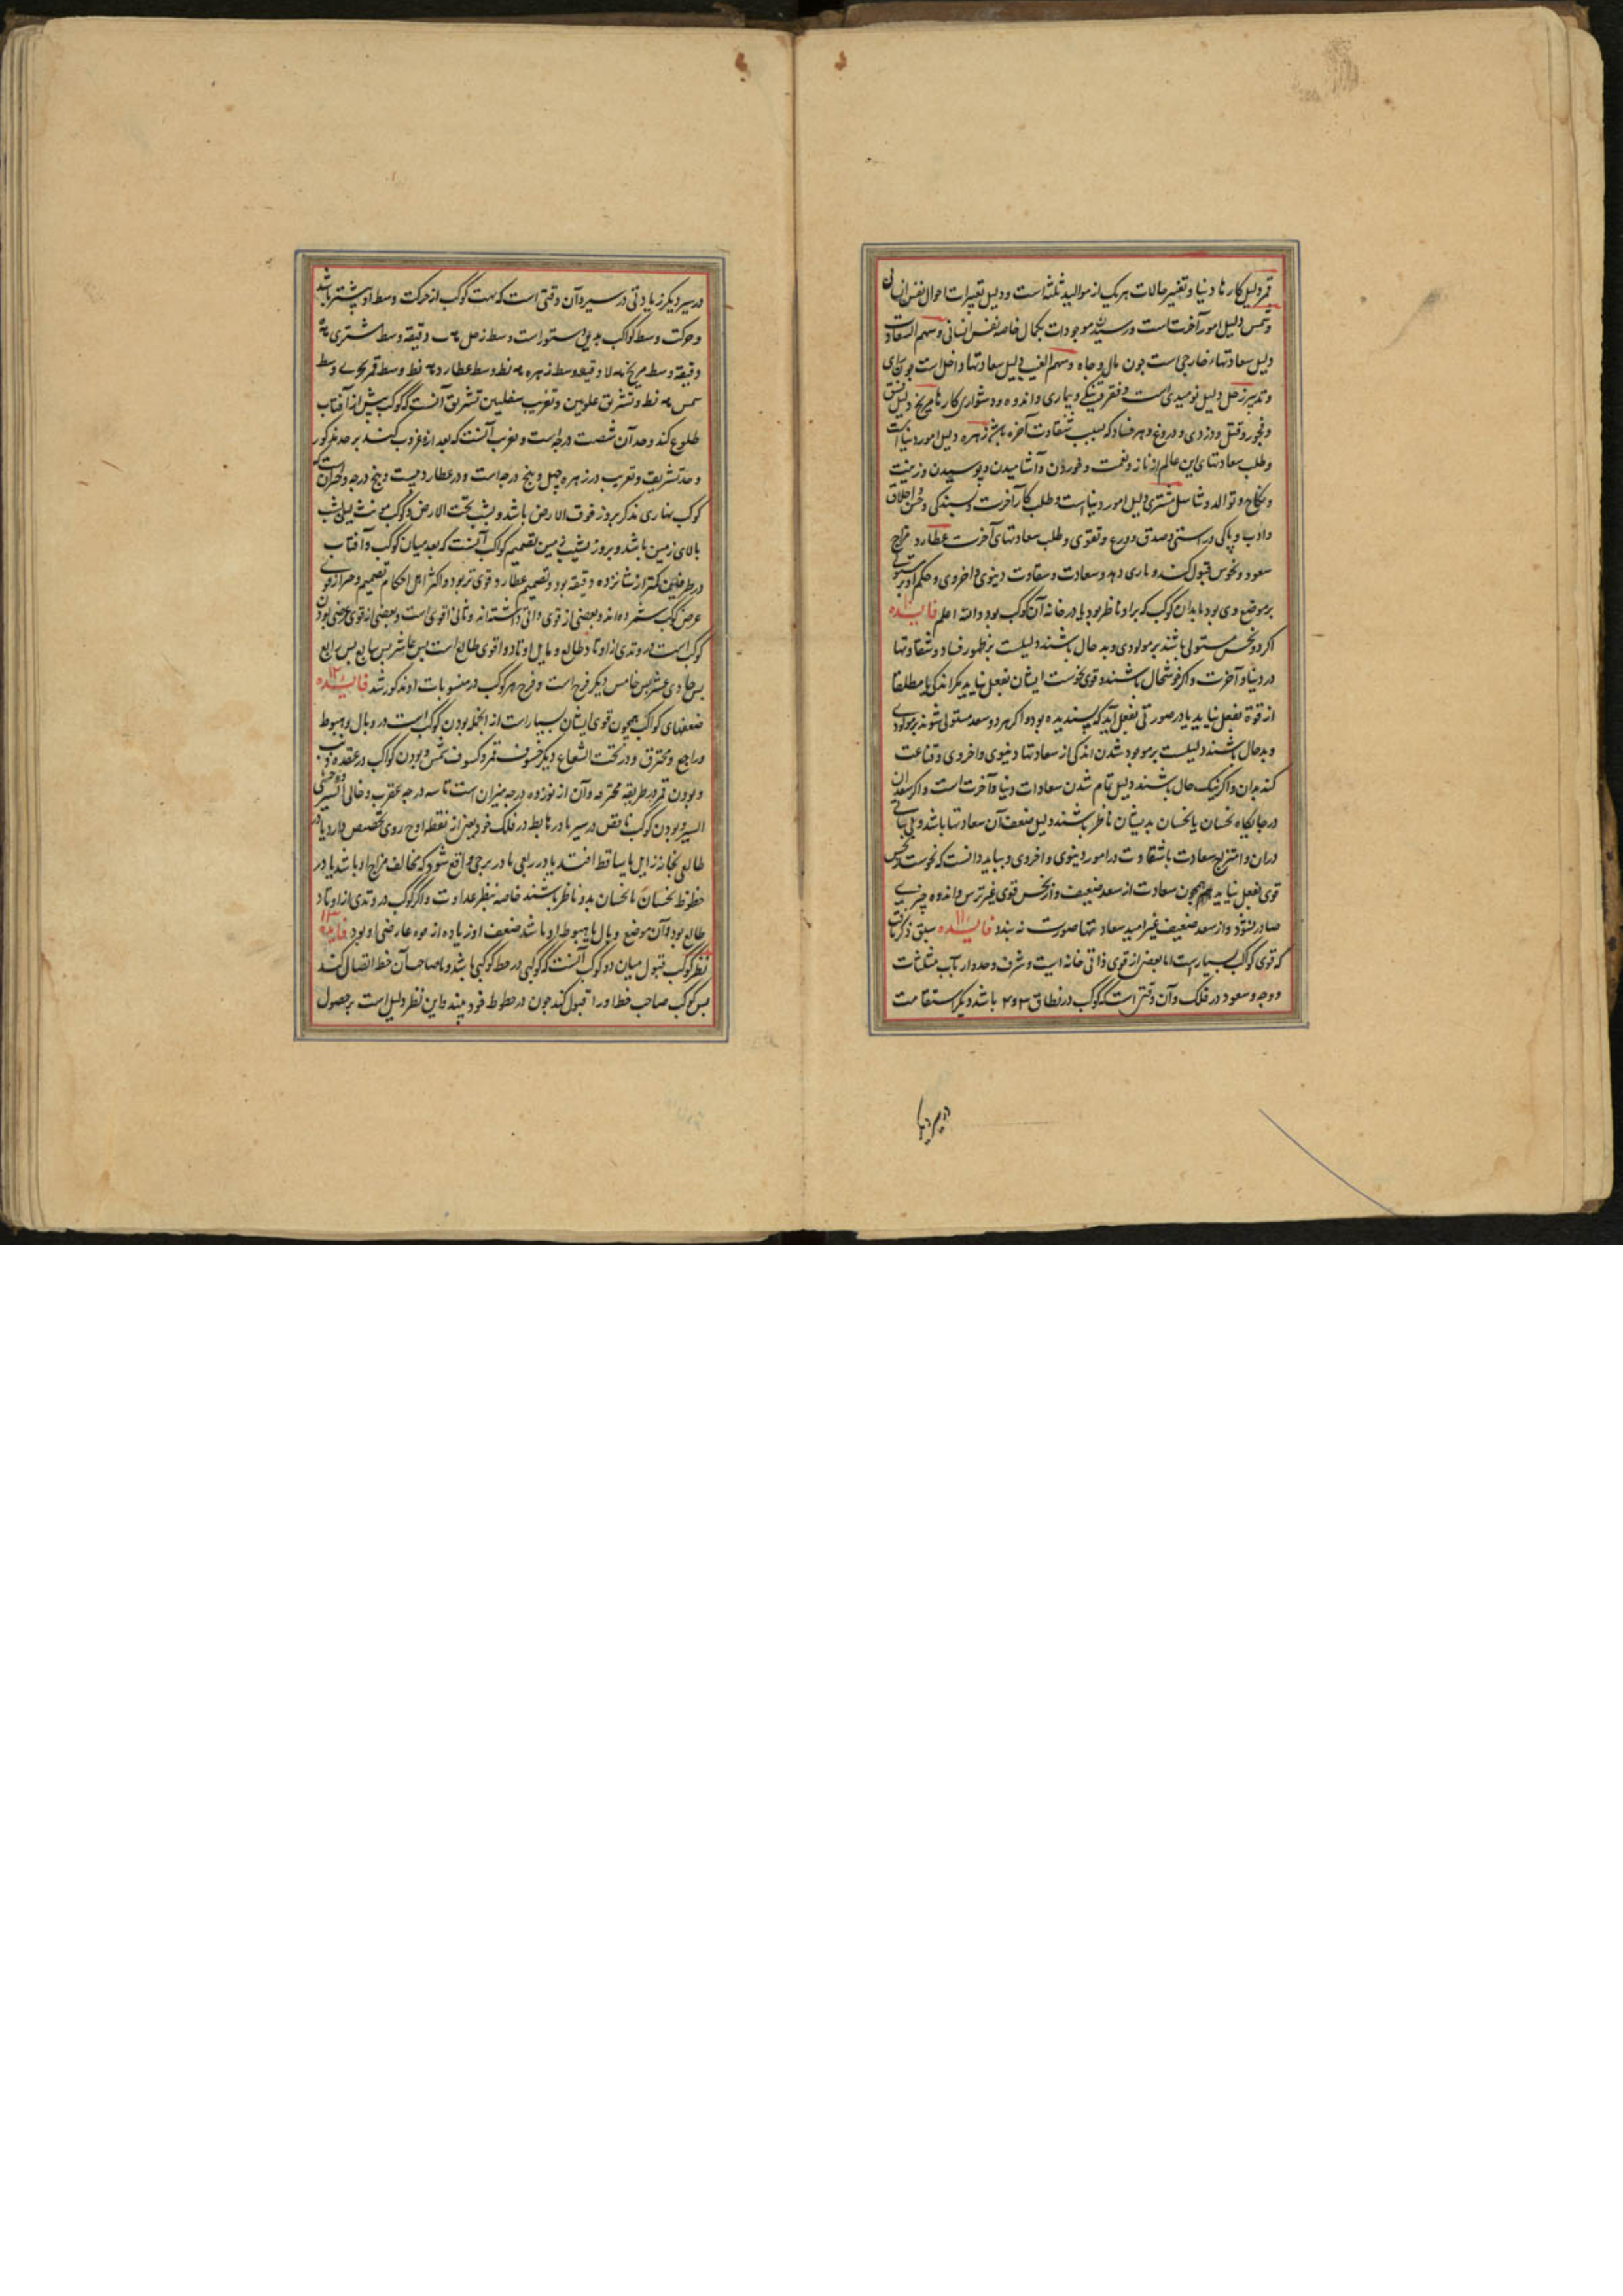 قمر دلیل کارها دنیا و تغییر حالات هر یک از موالید ثلثه است و دلیل تغییرات احوال نفس انسانی
و شمس دلیل امور آخرتست و رسیدن موجودات بکمال خاصه نفس انسانی و سهم السعادت
دلیل سعادتهاء خارجی است چون مال و جاه و سهم الغیب دلیل سعادتهاء داخل است چون رای
و تدبیر زحل دلیل نومیدی است و فقر و تنکی و بیماری و اندوه و دشواری کارها مریخ دلیل فسق
و فجور و قتل و دزدی و دروغ و هر فساد که سبب شقاوت آخره باشد زهره دلیل امور دنیا است
و طلب سعادتهای این عالم از ناز و نعمت و خوردن و آشامیدن و پوسیدن و زینت
و نکاح و توالد و تناسل مشتری دلیل امور دنیا است و طلب کار آخرت و بسندکی و حسن اخلاق
و ادب و پاکی و راستی و صدق و ورع و تقوی و طلب سعادتهای آخرت عطارد مزاج
سعود و نحوس قبول کند و یاری دهد و سعادت و شقاوت دینوی و اخروی و حکم او بر مستولی
بر موضع وی بود یا بدان کوکب که بر او ناظر بود یا در خانه آن کوکب بود والله اعلم فایده ۱۰
اکر دو نحس مستولی باشند بر مولودی و بد حال باشند دلیلست بر ظهور فساد و شقاوتها
در دنیا و آخرت و اکر خوشحال باشند و قوی نحوست ایشان بفعل نیاید مکر اندکی یا مطلقا
از قوة بفعل نیاید یا در صورتی بفعل آید که پسندیده بود و اکر هر دو سعد مستولی شوند بر مولودی
و بد حال باشند دلیلست بر موجود شدن اندکی از سعادتها دنیوی و اخروی و قناعت
کند بدان و اکر نیک حال باشند دلیل تمام شدن سعادات دنیا و آخرت است و اکر سعدان
در جایکاه نحسان یا نحسان بدیشان ناظر باشند دلیل ضعف آن سعادتها باشد و بی ثباتی
در آن و امتزاج سعادت با شقاوت در امور دینوی و اخروی و بباید دانست که نحوست نحس
قوی بفعل نیاید همچون سعادت از سعد ضعیف و از نحس قوی غیر ترس و اندوه چیزی
صادر نشود و از سعد ضعیف غیر امید سعادتها صورت نه بندد فایده ۱۱ سبق ذکر یافت
که قوی کواکب بسیار است اما بعضی از قوی ذاتی خانه است و شرف و حد و ارباب مثلثات
و وجه و صعود در فلک و آن وقتی است که کوکب در نطاق ۳ و ۴ باشد دیکر استقامت
در سیر دیکر زیادتی در سیر و آن وقتی است که بهت کوکب از حرکت وسط او بیشتر باشد
و حرکت وسط کواکب بدین دستور است وسط زحل دقیقه وسط مشتری
دقیقه وسط مریخ دقیقه وسط زهره نط وسط عطارد نط وسط قمر وسط
شمس نط و تشریق علویین و تغریب سفلیین تشریق آنست که کوکب پیش از آفتاب
طلوع کند و حد آن شصت درجه است و تغریب آنست که بعد ازو غروب کند بر حد مذکور
و حد تشریق و تغریب در زهره چهل و پنج درجه است و در عطارد بیست و پنج درجه و آنست که
کوکب نهاری مذکر بروز فوق الارض باشد و بشب تحت الارض و کوکب مونث لیلی بشب
بالای زمین باشد و بروز بشیب زمین تصمیم کواکب آنست که بعد میان کوکب و آفتاب
در طرفین کمتر از شانزده دقیقه بود و تصمیم عطارد قوی تر بود و اکثر اهل احکام تصمیم و حیز از قوی
عرضی کوکب شمرده اند و بعضی از قوی ذاتی داشته اند و ثانی اقوی است و بعضی از قوی عرضی بودن
کوکب است در وتدی از اوتاد طالع و مایل اوتاد و اقوی طالع است پس عاشر پس سابع پس رابع
پس حادی عشر پس خامس دیکر فرح است و فرح هر کوکب در منسوبات او مذکور شد فایده ۱۲
ضعفهای کواکب همچون قوی ایشان بسیار است از انجمله بودن کوکب است در وبال و هبوط
و راجع و محترق و در تحت الشعاع دیکر خسوف قمر و کسوف شمس و بودن کواکب در عقده ذنب
و بودن قمر در طریقه محترقه و آن از نوزده درجه میزان است تا سه درجه عقرب و خالی السیر و وحشی
السیر و بودن کوکب ناقص در سیر یا در هابط در فلک خود یعنی از نقطه اوج روی بحضیض دارد یا در
طالعی بخانه زایل یا ساقط افتد یا در ربعی یا در برجی واقع شود که مخالف مزاج او باشد یا در
حظوظ نحسان یا نحسان بدو ناظر باشند خاصه بنظر عداوت و اکر کوکب در وتدی از اوتاد
طالع بود و آن موضع وبال یا هبوط او باشد ضعف او زیاده از قوه عارضی او بود فایده ۱۳
نظر کوکب قبول میان دو کوکب آنست که کوکبی در حظ کوکبی باشد و با صاحب آن حظ اتصال کند
پس کوکب صاحب حظ او را قبول کند چون در حظوظ خود بیند و این نظر دلیل است بر حصول